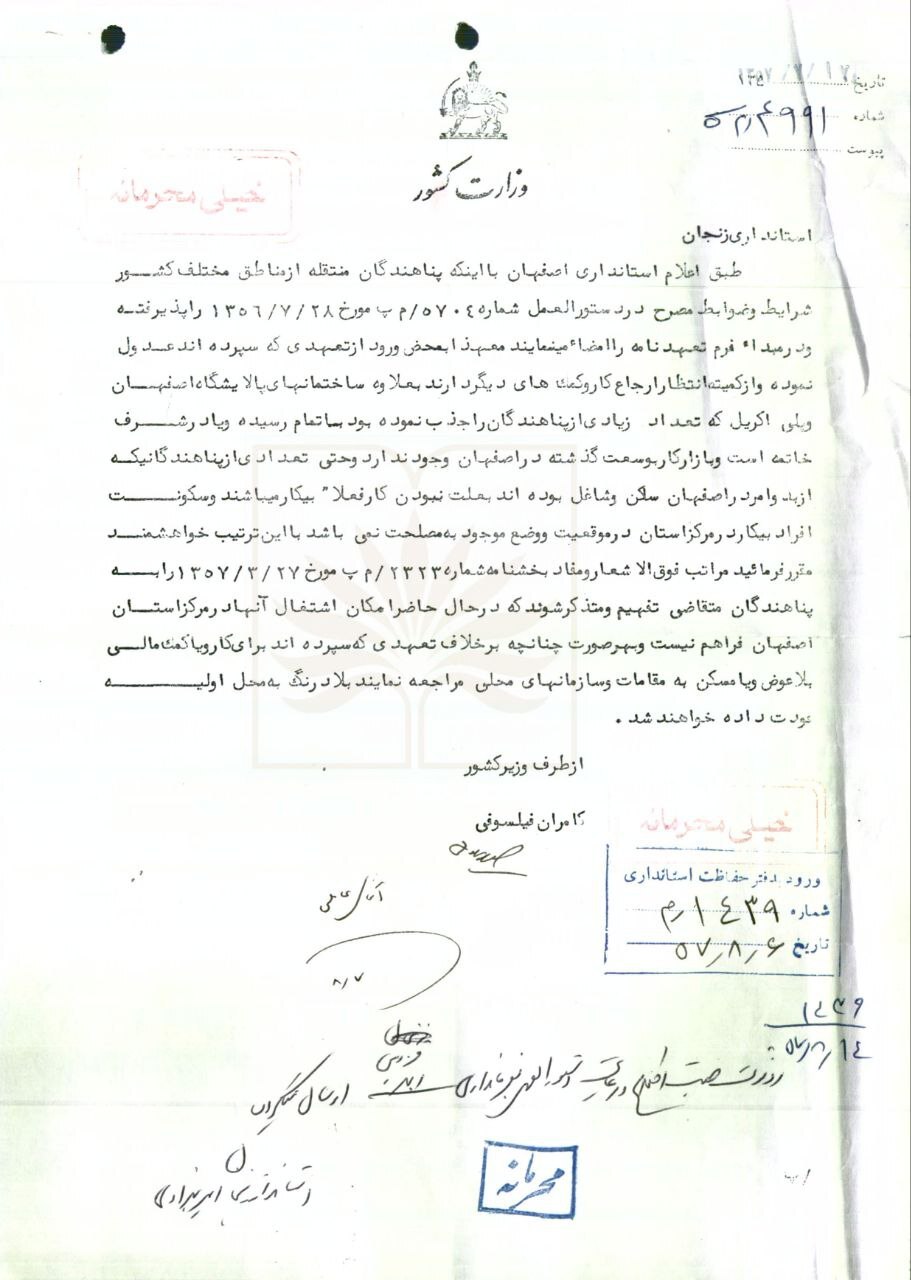 تاریخ ۱۳۵۷/۷/۱۷
شماره ۴۹۹۱/م/۵
پیوست
وزارت کشور
خیلی محرمانه
استانداری زنجان
طبق اعلام استانداری اصفهان با اینکه پناهندگان منتقله از مناطق مختلف کشور
شرایط و ضوابط مصرح در دستورالعمل شماره ۵۷۰۴/م پ مورخ ۱۳۵۶/۷/۲۸ را پذیرفته
و در مبداء فرم تعهدنامه را امضاء مینمایند معهذا بمحض ورود از تعهدی که سپرده اند عدول
نموده و از کمیته انتظار ارجاع کار و کمک های دیگر دارند بعلاوه ساختمانهای پالایشگاه اصفهان
و پلی اکریل که تعداد زیادی از پناهندگان را جذب نموده بود بـاتمام رسیده و یا در شرف
خاتمه است و بازار کار بوسعت گذشته در اصفهان وجود ندارد و حتی تعدادی از پناهندگانیکه
از بدو امر در اصفهان ساکن و شاغل بوده اند بعلت نبودن کار فعلا" بیکار میباشند و سکونت
افراد بیکار در مرکز استان در موقعیت و وضع موجود به مصلحت نمی باشد با این ترتیب خواهشمند
مقرر فرمائید مراتب فوق الاشعار و مفاد بخشنامه شماره ۲۳۲۳/م پ مورخ ۱۳۵۷/۳/۲۷ را به
پناهندگان متقاضی تفهیم و متذکر شوند که در حال حاضر امکان اشتغال آنها در مرکز استان
اصفهان فراهم نیست و بهر صورت چنانچه بر خلاف تعهدی که سپرده اند برای کار و یا کمک مالی
بلاعوض و یا مسکن به مقامات و سازمانهای محلی مراجعه نمایند بلادرنگ به محل اولیه
عودت داده خواهند شد .
از طرف وزیر کشور
کامران فیلسوفی
خیلی محرمانه
ورود بدفتر حفاظت استانداری
شماره ۱۴۳۹/م
تاریخ ۵۷/۸/۶
۸/۷
۱۴۳۹
۵۷/۸/۱۴
محرمانه